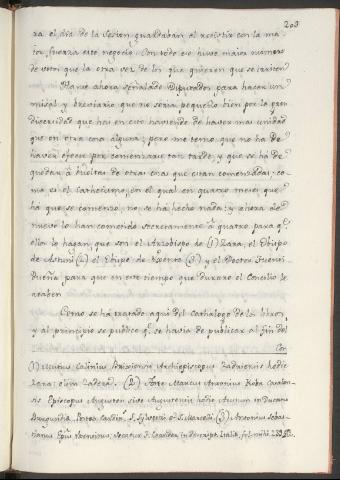 203
ra el dia de la Sesion guardaban el resistir con la ma-
yor fuerza este negocio. Con todo eso huvo maior numero
de votos que la otra vez de los que quieren que se
Hanse ahora señalado Diputados para hacer un
misal y breviario que no seria pequeño bien por la gran
diversidad que hai en esto haviendo de haver mas unidad
que en otra cosa alguna; pero me temo que no ha de
haver efecto por comenzarse tan tarde, y que se ha de
quedar à bueltas de otras cosas que estan comenzadas; co-
mo es el Cathecismo, en el qual en quatro meses que
há que se comenzo, no se há hecho nada: y ahora de
nuevo lo han cometido secretamente à quatro para q.e
ellos lo hagan, que son el Arzobispo de (1) Zara, el Obispo
de (2) el Obispo de (3) y el Doctor
para que en este tiempo que durare el Concilio le
acaben
Como se há tratado aqui del Cathalogo de los libros,
y al principio se publicò q.e se havia de publicar al fin del
Con
(1) Mutius Calinius, Brixiensis Archiepiscopus Zadrensis hodie
Zara: olim Iadera. (2) Forte Marcus Antonius Boba Casalen-
sis Episcopus Augusten sive Augustensis hodie in Ducatu
Postea Cardin.s S. Silvestri et S. Marcelli. (3) Antonius Sebas-
tianus Episc.